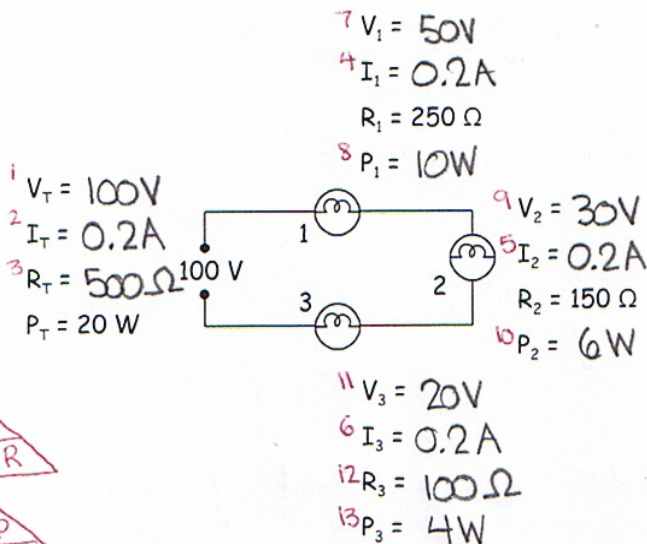 7 V₁ = 50V
4 I₁ = 0.2A
R₁ = 250 Ω
8 P₁ = 10W
1 V_T = 100V
2 I_T = 0.2A
3 R_T = 500Ω
P_T = 20 W
100 V
1
2
3
9 V₂ = 30V
5 I₂ = 0.2A
R₂ = 150 Ω
10 P₂ = 6W
11 V₃ = 20V
6 I₃ = 0.2A
12 R₃ = 100Ω
13 P₃ = 4W
R